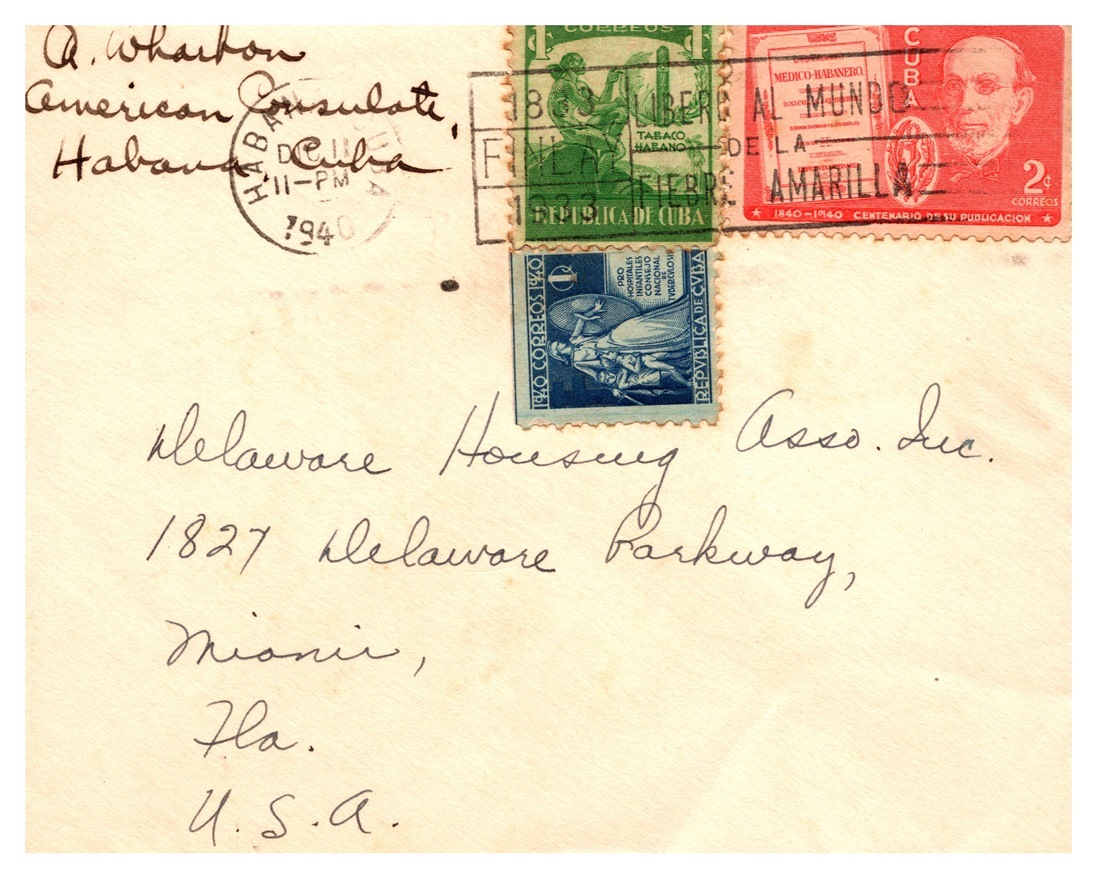 A. Wharton
American Consulate,
Habana, Cuba
HABANA CUBA
DIC 11
11-PM
1940
1 CORREOS 1
TABACO
HABANO
REPUBLICA DE CUBA
1833 LIBERO AL MUNDO
FINLAY DE LA
1933 FIEBRE AMARILLA
MEDICO-HABANERO.
CUBA
2¢
CORREOS
1840-1940 CENTENARIO DE SU PUBLICACION
1940 CORREOS 1940
1c
PRO
HOSPITALES
INFANTILES
CONSEJO
NACIONAL
DE
TVBERCVLOSIS
REPVBLICA DE CVBA
Delaware Housing Asso. Inc.
1827 Delaware Parkway,
Miami,
Fla.
U.S.A.